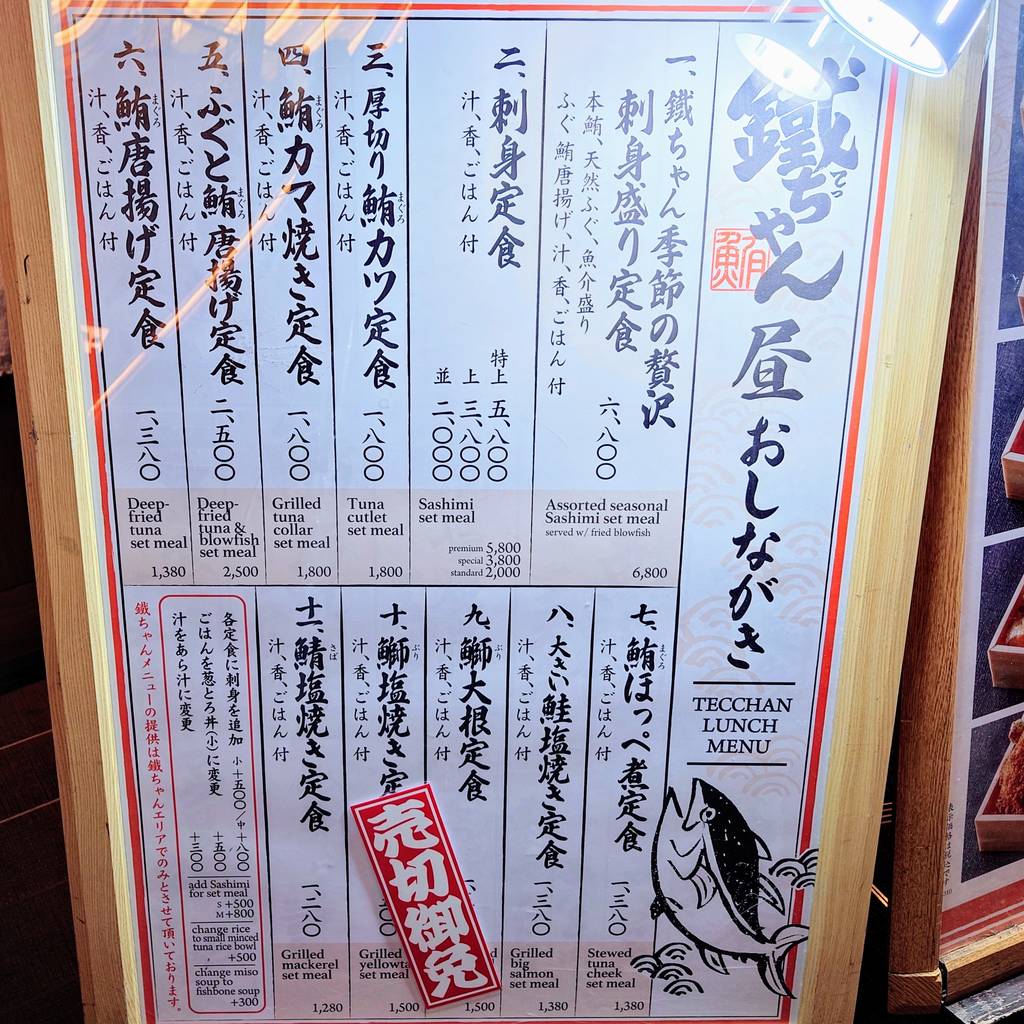 鐵ちゃん 昼 おしながき
てっ
鮪
TECCHAN
LUNCH
MENU
一、鐵ちゃん季節の贅沢
刺身盛り定食
本鮪、天然ふぐ、魚介盛り
ふぐ鮪唐揚げ、汁、香、ごはん 付
六、八〇〇
Assorted seasonal
Sashimi set meal
served w/ fried blowfish
6,800
二、刺身定食
汁、香、ごはん 付
特上 五、八〇〇
上 三、八〇〇
並 二、〇〇〇
Sashimi
set meal
premium 5,800
special 3,800
standard 2,000
三、厚切り鮪カツ定食
まぐろ
汁、香、ごはん 付
一、八〇〇
Tuna
cutlet
set meal
1,800
四、鮪カマ焼き定食
まぐろ
汁、香、ごはん 付
一、八〇〇
Grilled
tuna
collar
set meal
1,800
五、ふぐと鮪唐揚げ定食
まぐろ
汁、香、ごはん 付
二、五〇〇
Deep-
fried
tuna &
blowfish
set meal
2,500
六、鮪唐揚げ定食
まぐろ
汁、香、ごはん 付
一、三八〇
Deep-
fried
tuna
set meal
1,380
七、鮪ほっぺ煮定食
まぐろ
汁、香、ごはん 付
一、三八〇
Stewed
tuna
cheek
set meal
1,380
八、大きい鮭塩焼き定食
汁、香、ごはん 付
一、三八〇
Grilled
big
salmon
set meal
1,380
九、鰤大根定食
ぶり
汁、香、ごはん 付
1,500
十、鰤塩焼き定
ぶり
汁、香、ごはん 付
Grilled
set meal
1,500
売切御免
十一、鯖塩焼き定食
さば
汁、香、ごはん 付
一、二八〇
Grilled
mackerel
set meal
1,280
各定食に刺身を追加 小＋五〇〇/中＋八〇〇
ごはんを葱とろ丼(小)に変更 ＋五〇〇
汁をあら汁に変更 ＋三〇〇
add Sashimi
for set meal
S +500
M +800
change rice
to small minced
tuna rice bowl
+500
change miso
soup to
fishbone soup
+300
鐵ちゃんメニューの提供は鐵ちゃんエリアでのみとさせて頂いております。